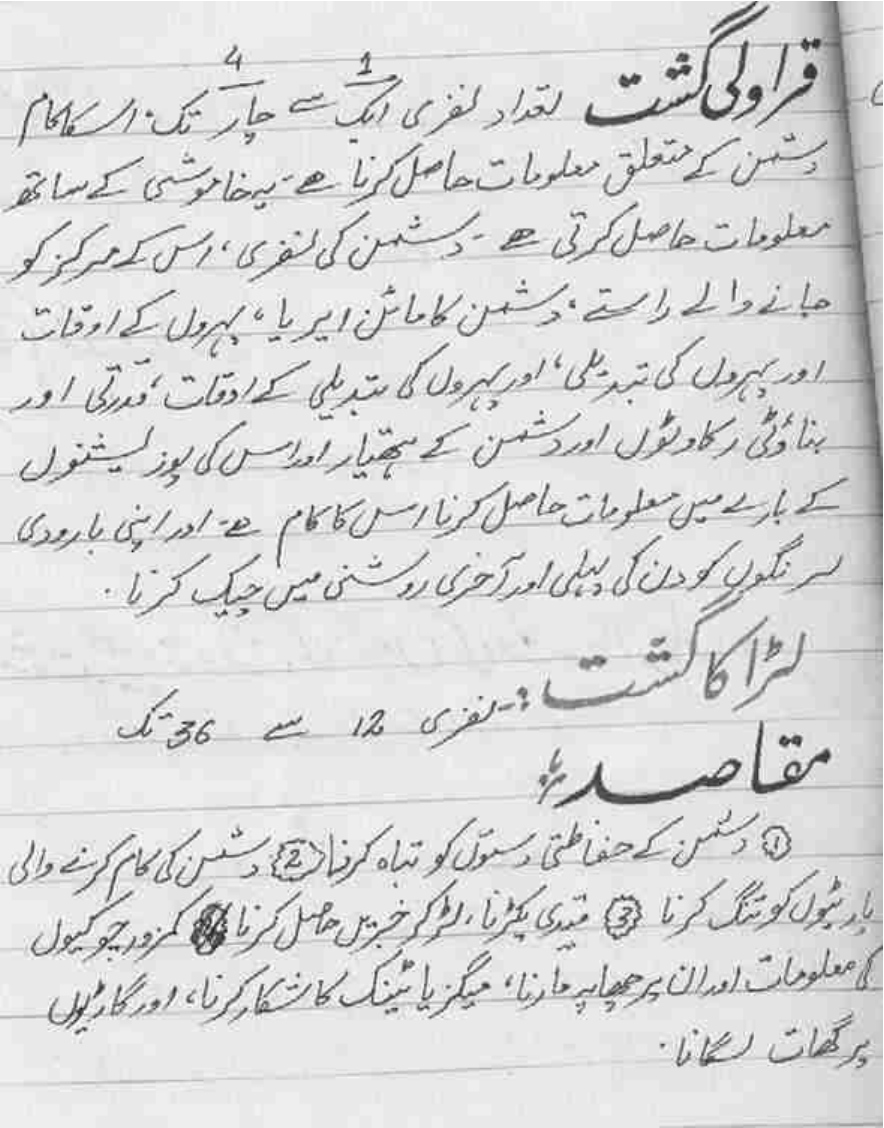 4 1
قراولی گشت لقداد لفری ایک سے چار تک. اسکا کام
دشمن کے متعلق معلومات حاصل کرنا ھے - یہ خاموشی کے ساتھ
معلومات حاصل کرتی ھے - دشمن کی لفری، اس کے مرکز کو
جانے والے راستے، دشمن کا مائن ایریا، پہروں کے اوقات
اور پہروں کی تبدیلی، اور پہروں کی تبدیلی کے اوقات، قدرتی اور
بناؤٹی رکاوٹوں اور دشمن کے ہتھیار اور اس کی پوزیشنوں
کے بارے میں معلومات حاصل کرنا اس کا کام ھے - اور اپنی بارودی
سرنگوں کو دن کی پہلی اور آخری روشنی میں چیک کرنا.
لڑاکا گشت :- لفری 12 سے 36 تک
مقاصد
① دشمن کے حفاظتی دستوں کو تباہ کرنا ② دشمن کی کام کرنے والی
پارٹیوں کو تنگ کرنا ③ قیدی پکڑنا، لڑ کر خبریں حاصل کرنا کمزور چوکیوں
کی معلومات اور ان پر چھاپہ مارنا، میگز یا ٹینک کا شکار کرنا، اور گاڑیوں
پر گھات لگانا.